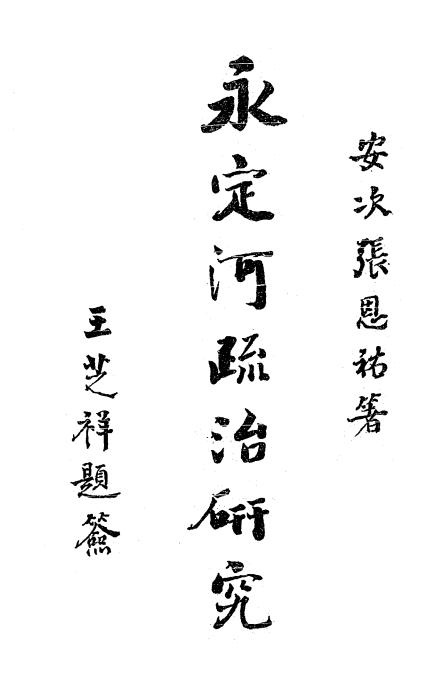 安次張恩祐箸
永定河疏治研究
王芝祥題簽